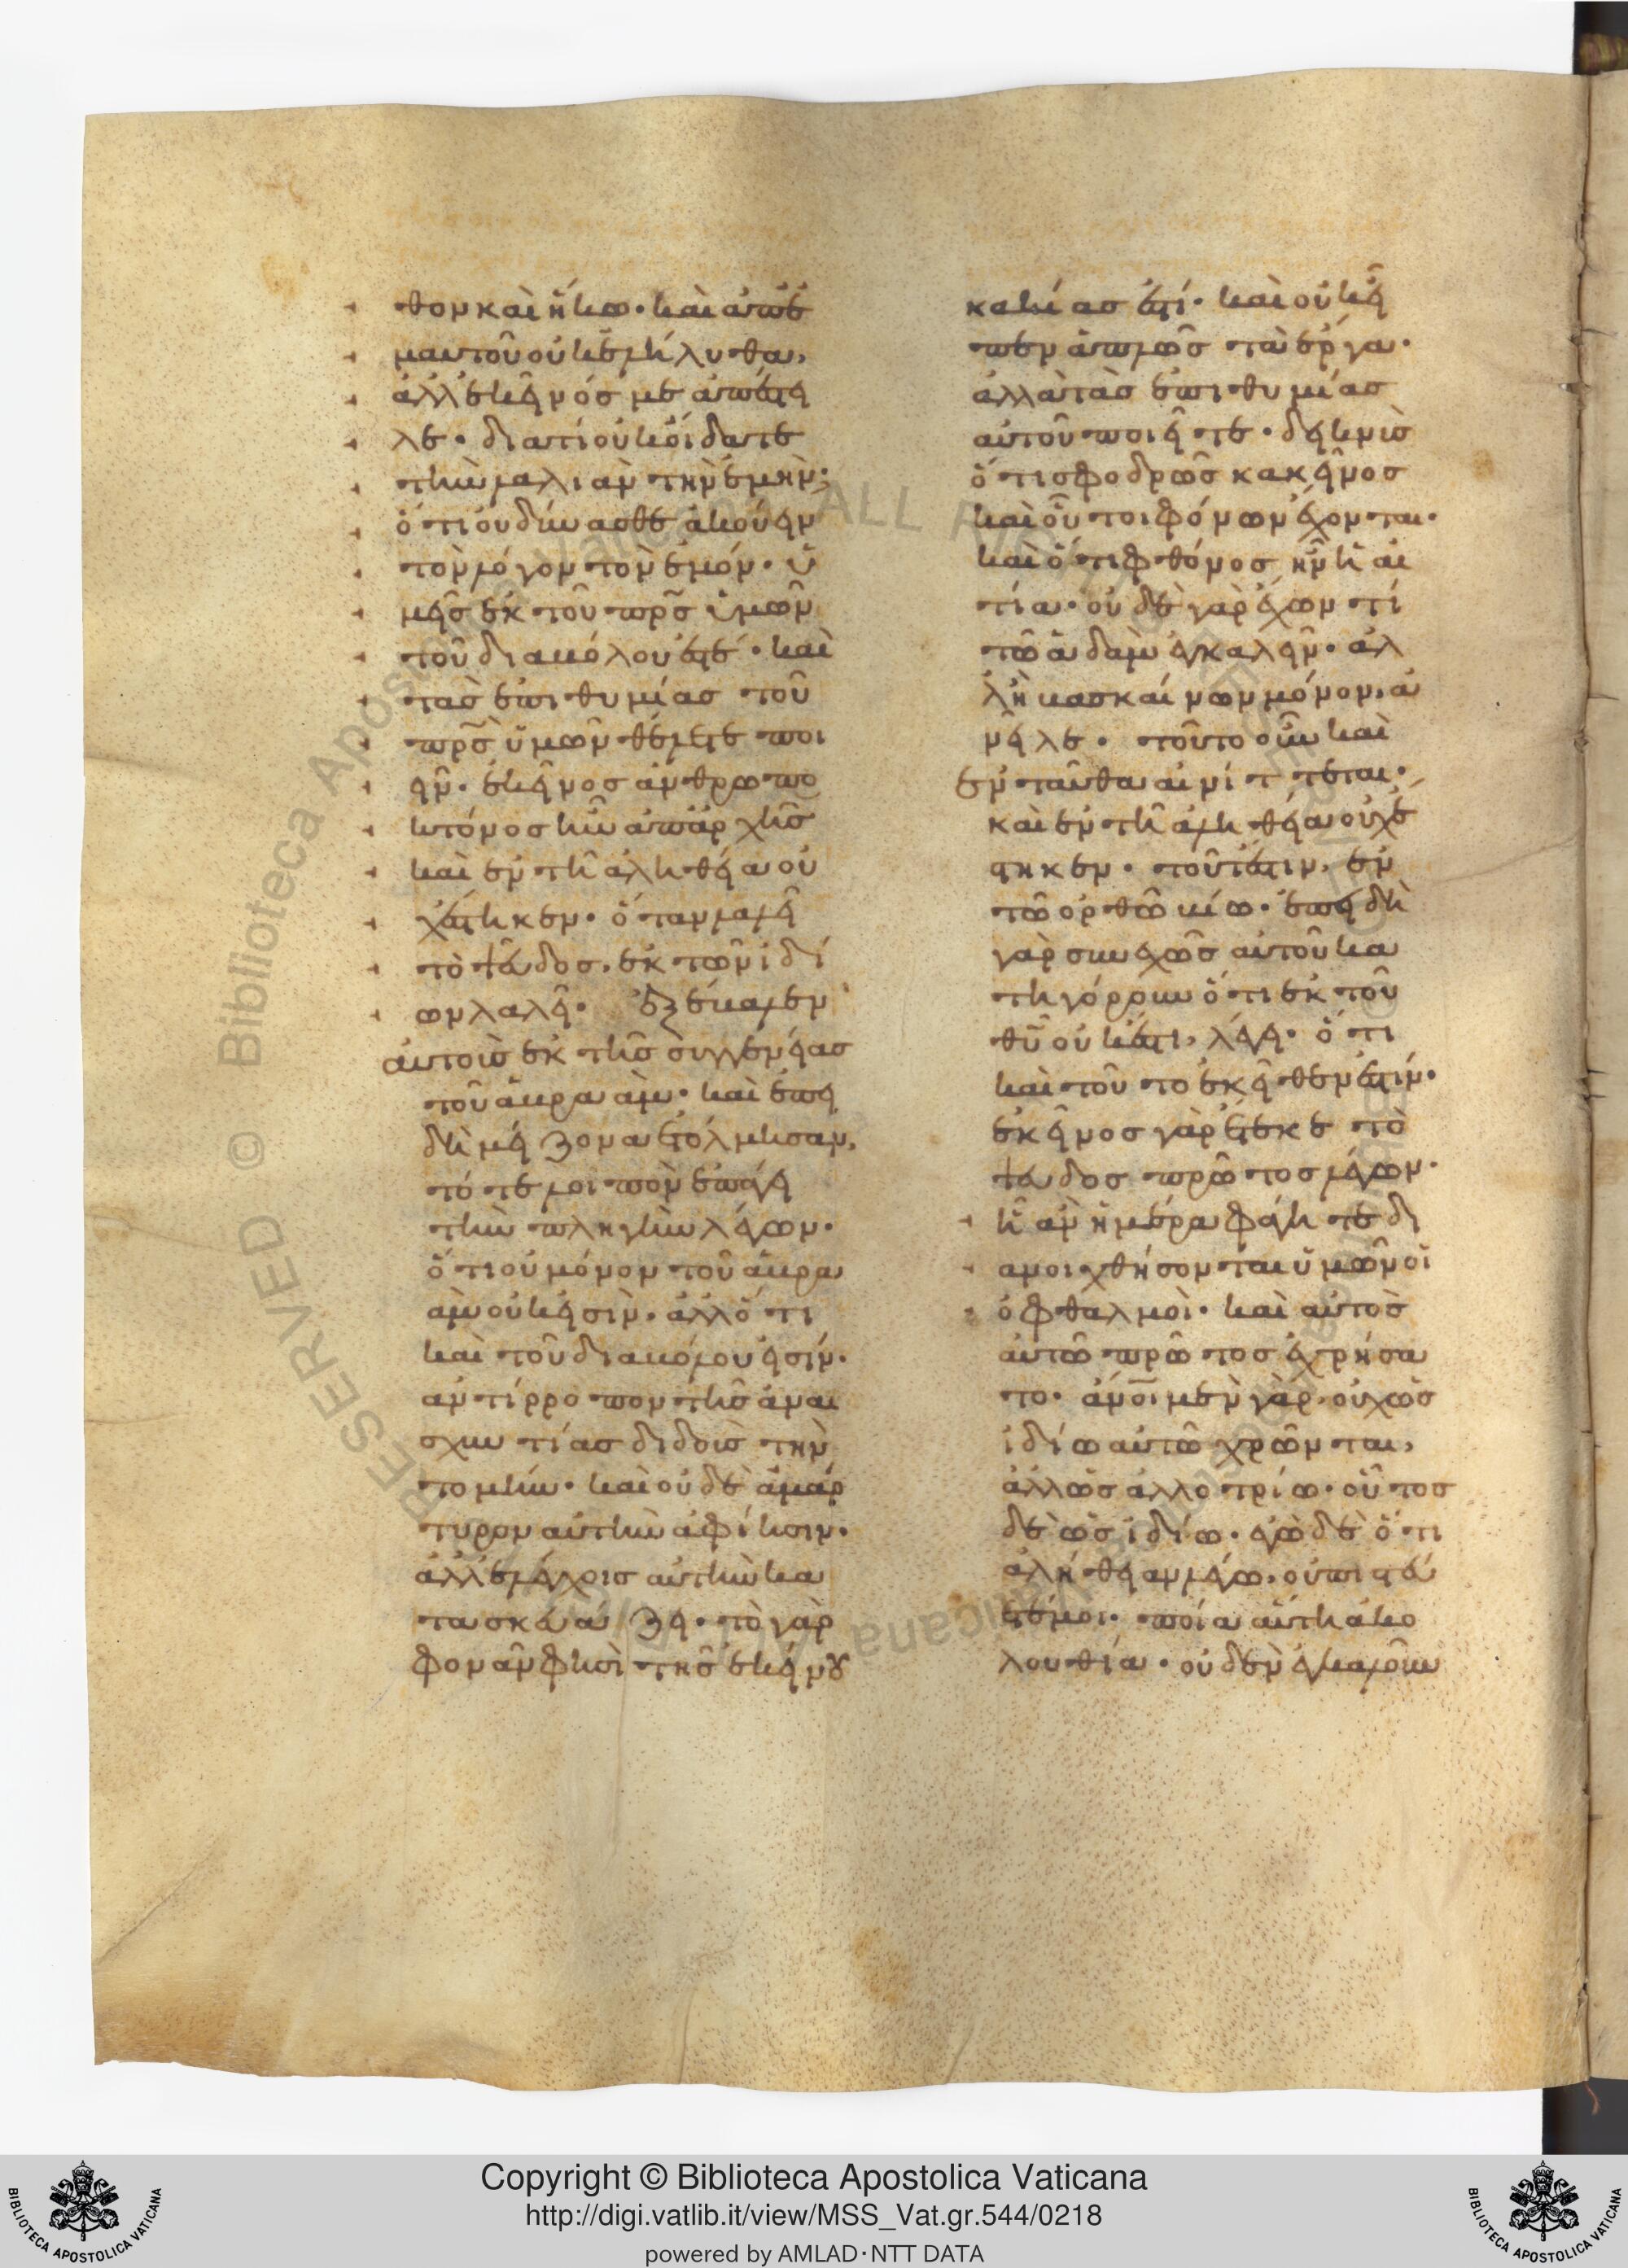 θον καὶ ἥκω· καὶ ἀπ' ἐ
μαυτοῦ οὐκ ἐλήλυθα,
ἀλλ' ἐκεῖνός με ἀπέστει
λε· διατί οὐκ οἴδατε
τὴν λαλιὰν τὴν ἐμήν;
ὅτι οὐ δύνασθε ἀκούειν
τὸν λόγον τὸν ἐμόν· ὑ
μεῖς ἐκ τοῦ πρς ὑμῶν
τοῦ διαβόλου ἐστέ· καὶ
τὰς ἐπιθυμίας τοῦ
πρς ὑμῶν θέλετε ποι
εῖν. ἐκεῖνος ἀνθρωπο
κτόνος ἦν ἀπ' ἀρχῆς
καὶ ἐν τῇ ἀληθείᾳ οὐ
χ' ἕστηκεν· ὅταν λαλεῖ
τὸ ψεῦδος, ἐκ τῶν ἰδί
ων λαλεῖ· ἐξέβαλεν
αὐτοὺς ἐκ τῆς συγγενείας
τοῦ ἀβραάμ· καὶ ἐπει
δὴ μείζονα ἐτόλμησαν,
τότε λοιπὸν ἐπάγει
τὴν πληγὴν λέγων·
ὅτι οὐ μόνον τοῦ ἀβρα
ὰμ οὐκ εἰσὶν· ἀλλ' ὅτι
καὶ τοῦ διαβόλου εἰσίν·
ἀντίρροπον τῆς ἀναι
σχυντίας διδοὺς τὴν
τομήν· καὶ οὐδὲ ἀμάρ
τυρον αὐτὴν ἀφίησιν·
ἀλλ' ἐλέγχοις αὐτὴν κα
τασκευάζει· τὸ γὰρ
φονᾶν φησὶ τῆς ἐκείνου
κακίας ἐστί· καὶ οὐκ εἶ
πεν ἁπλῶς τὰ ἔργα·
ἀλλὰ τὰς ἐπιθυμίας
αὐτοῦ ποιεῖτε· δεικνὺς
ὅτι σφοδρῶς κἀκεῖνος
καὶ οὗτοι φόνων ἔχονται·
καὶ ὅτι φθόνος ἦν ἡ αἰ
τία· οὐδὲ γὰρ ἔχων τί
τῷ ἀδὰμ ἐγκαλεῖν· ἀλ
λ' ἢ βασκαίνων μόνον, ἀ
νεῖλε· τοῦτο οὖν καὶ
ἐνταῦθα αἰνίττεται·
καὶ ἐν τῇ ἀληθείᾳ οὐχ ἕ
στηκεν· τουτέστιν, ἐν
τῷ ὀρθῷ βίῳ· ἐπειδὴ
γὰρ συνεχῶς αὐτοῦ κα
τηγόρουν ὅτι ἐκ τοῦ
θυ οὐκ ἔστι, λέγει· ὅτι
καὶ τοῦτο ἐκεῖθεν ἐστίν·
ἐκεῖνος γὰρ ἔτεκε τὸ
ψεῦδος πρῶτος λέγων·
ἧ ἂν ἡμέρα φάγητε δι
ανοιχθήσονται ὑμῶν οἱ
ὀφθαλμοὶ· καὶ αὐτὸς
αὐτῷ πρῶτος ἐχρήσα
το· ἀνοι μὲν γὰρ, οὐχ ὡς
ἰδίῳ αὐτῷ χρῶνται,
ἀλλ' ὡς ἀλλοτρίῳ· οὗτος
δὲ ὡς ἰδίῳ· ἐγὼ δὲ ὅτι
ἀλήθειαν λέγω, οὐ πιστεύ
ετέ μοι· ποία αὕτη ἀκο
λουθία· οὐδὲν ἐγκαλοῦν